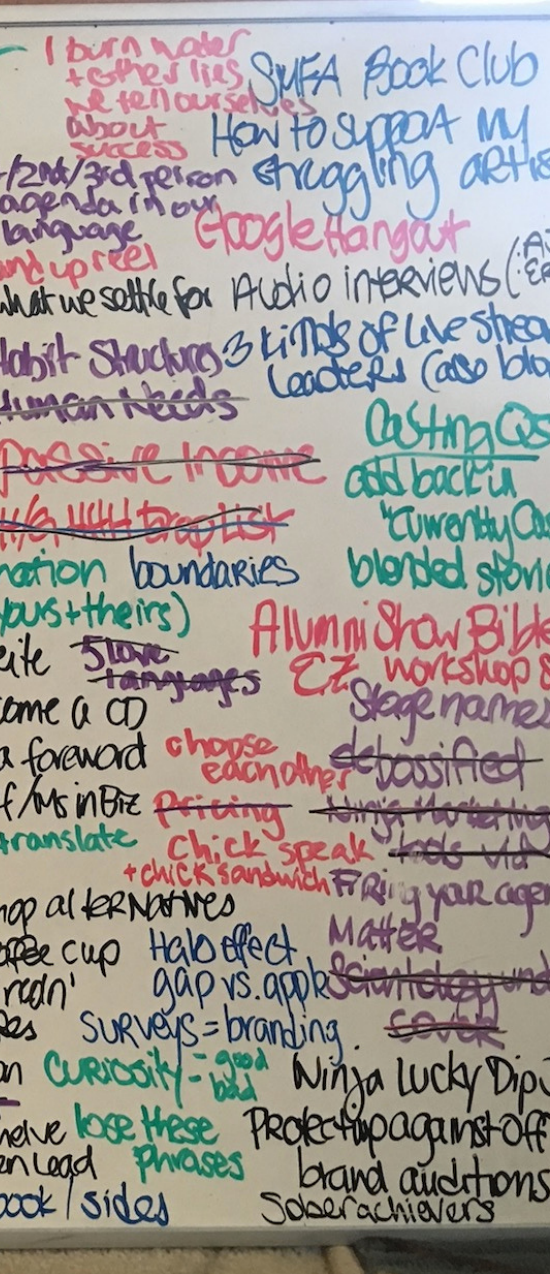 I burn water
+ other lies
we tell ourselves
about
success
SMFA Book Club
How to support my
struggling artis
/2nd/3rd person
agenda in our
language
Google Hangout
and up reel
what we settle for
Audio interviews (
Habit Structures
3 kinds of live strea
leaders (also blo
Human Needs
Passive Income
Casting Qs
add back in
"Currently Ca
blended stori
nation boundaries
yours + theirs)
Alumni Show Bible
EZ workshop
5 love
languages
Stage names
come a CD
a foreword
choose
each other
debossified
f/Ms in Biz
Pricing
Ninja Marketing
translate
Chick speak
tools
+ chick sandwich
Firing your agen
hop alterNatives
Matter
coffee cup
Halo effect
gap vs. apple
Scientology und
Cover
surveys = branding
Curiosity - good
bad
Ninja Lucky Dip
helve
lose these
phrases
Project up against off
en Lead
brand auditions
book / sides
Soberachievers